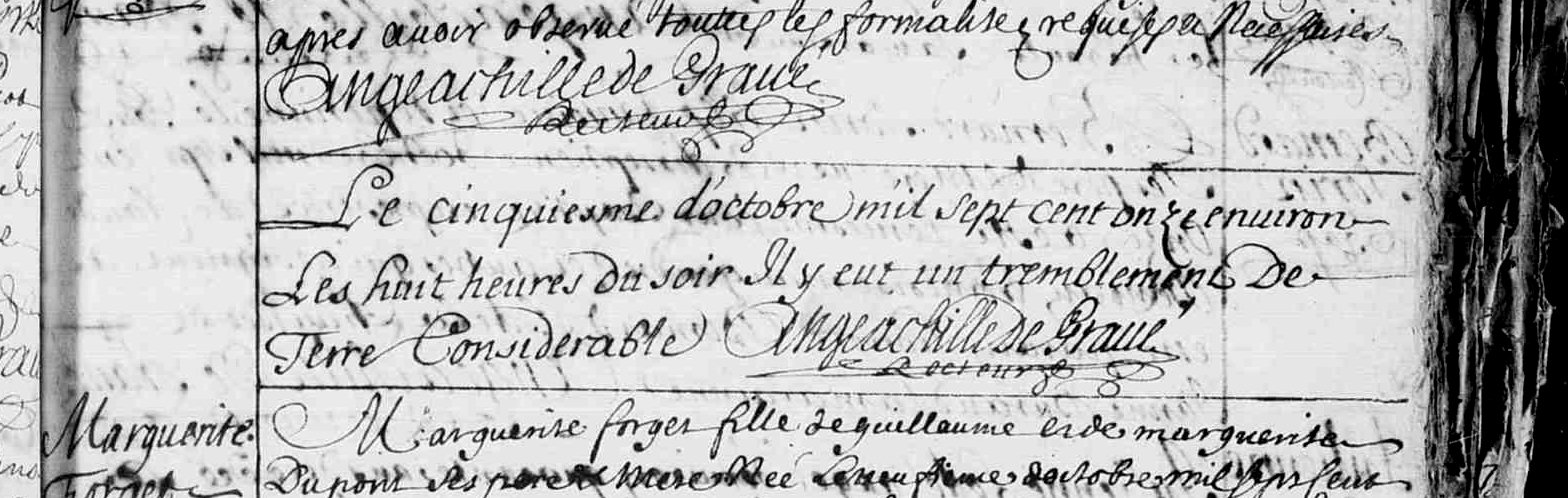 apres avoir observé touttes les formalitez requises et Necessaires
angeachille de Gravé
Recteur
Le cinquiesme d'octobre mil sept cent onze environ
Les huit heures du soir Il y eut un tremblement De
Terre Considerable angeachille de Gravé
Recteur
Marguerite forget fille de guillaume et de marguerite
Marguerite
Dupont ses pere et Mere Née le neufieme d'octobre mil sept cent
Forget